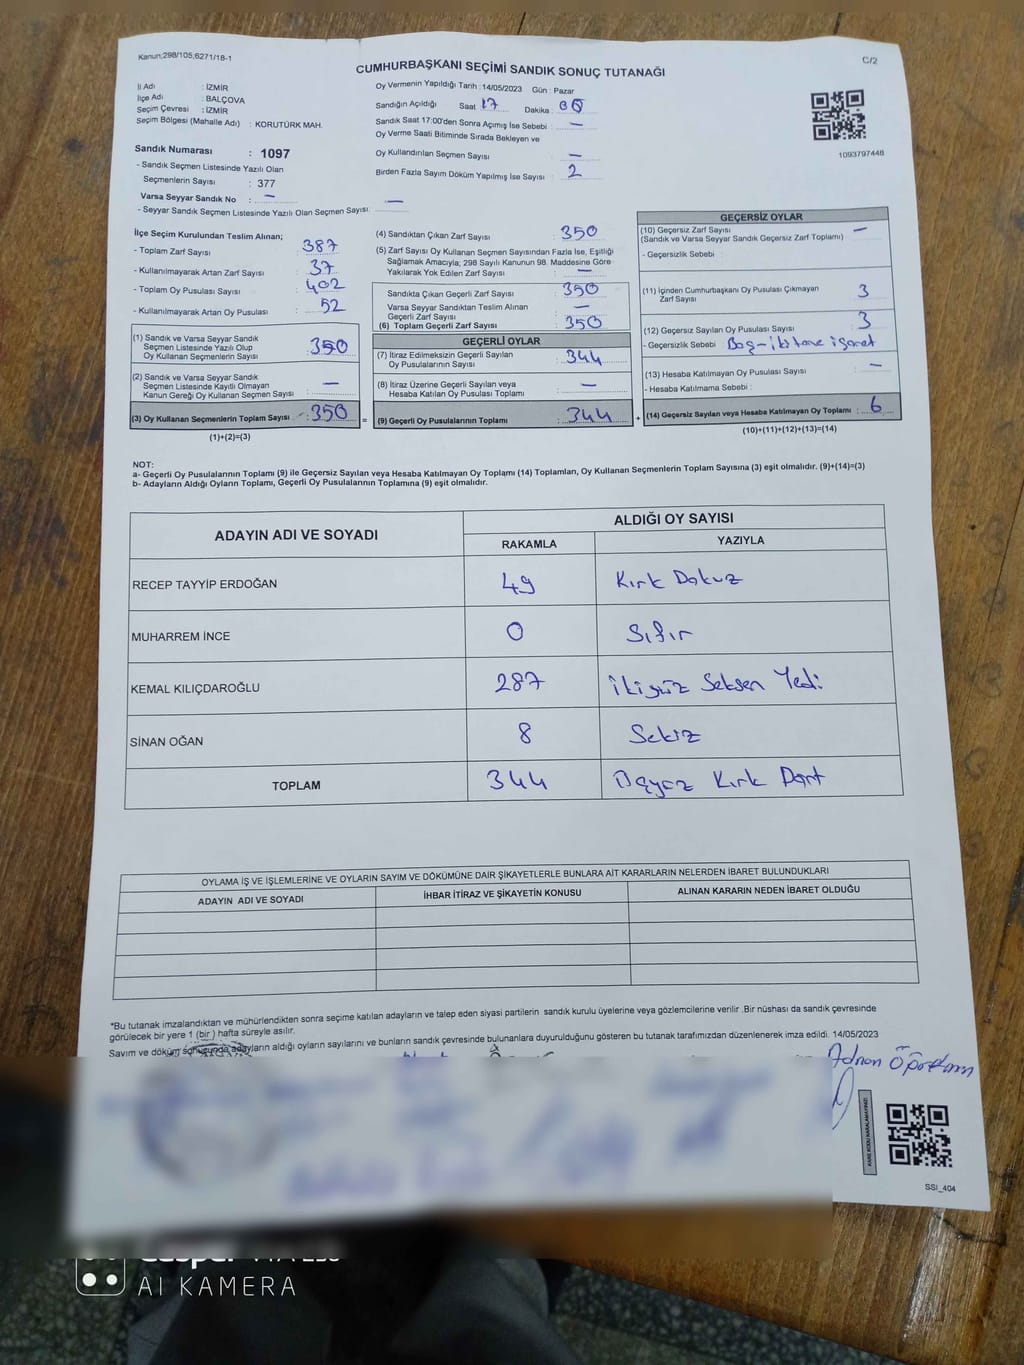 Kanun;298/105;6271/18-1
C/2
CUMHURBAŞKANI SEÇİMİ SANDIK SONUÇ TUTANAĞI
İl Adı : İZMİR
İlçe Adı : BALÇOVA
Seçim Çevresi : İZMİR
Seçim Bölgesi (Mahalle Adı) : KORUTÜRK MAH.
Oy Vermenin Yapıldığı Tarih : 14/05/2023 Gün : Pazar
Sandığın Açıldığı Saat 17 Dakika : 00
Sandık Saat 17:00'den Sonra Açımış İse Sebebi : —
Oy Verme Saati Bitiminde Sırada Bekleyen ve
Oy Kullandırılan Seçmen Sayısı : —
Birden Fazla Sayım Döküm Yapılmış İse Sayısı : 2
1093797448
Sandık Numarası : 1097
- Sandık Seçmen Listesinde Yazılı Olan
Seçmenlerin Sayısı : 377
Varsa Seyyar Sandık No : —
- Seyyar Sandık Seçmen Listesinde Yazılı Olan Seçmen Sayısı : —
İlçe Seçim Kurulundan Teslim Alınan;
- Toplam Zarf Sayısı : 387
- Kullanılmayarak Artan Zarf Sayısı : 37
- Toplam Oy Pusulası Sayısı : 402
- Kullanılmayarak Artan Oy Pusulası : 52
(1) Sandık ve Varsa Seyyar Sandık
Seçmen Listesinde Yazılı Olup
Oy Kullanan Seçmenlerin Sayısı : 350
(2) Sandık ve Varsa Seyyar Sandık
Seçmen Listesinde Kayıtlı Olmayan
Kanun Gereği Oy Kullanan Seçmen Sayısı : —
(3) Oy Kullanan Seçmenlerin Toplam Sayısı : 350 =
(1)+(2)=(3)
(4) Sandıktan Çıkan Zarf Sayısı : 350
(5) Zarf Sayısı Oy Kullanan Seçmen Sayısından Fazla İse, Eşitliği
Sağlamak Amacıyla; 298 Sayılı Kanunun 98. Maddesine Göre
Yakılarak Yok Edilen Zarf Sayısı : —
Sandıkta Çıkan Geçerli Zarf Sayısı : 350
Varsa Seyyar Sandıktan Teslim Alınan
Geçerli Zarf Sayısı : —
(6) Toplam Geçerli Zarf Sayısı : 350
GEÇERLİ OYLAR
(7) İtiraz Edilmeksizin Geçerli Sayılan
Oy Pusulalarının Sayısı : 344
(8) İtiraz Üzerine Geçerli Sayılan veya
Hesaba Katılan Oy Pusulası Toplamı : —
(9) Geçerli Oy Pusulalarının Toplamı : 344 +
GEÇERSİZ OYLAR
(10) Geçersiz Zarf Sayısı : —
(Sandık ve Varsa Seyyar Sandık Geçersiz Zarf Toplamı)
- Geçersizlik Sebebi :
(11) İçinden Cumhurbaşkanı Oy Pusulası Çıkmayan
Zarf Sayısı : 3
(12) Geçersiz Sayılan Oy Pusulası Sayısı : 3
- Geçersizlik Sebebi : Boş-iki tane işaret
(13) Hesaba Katılmayan Oy Pusulası Sayısı : —
- Hesaba Katılmama Sebebi :
(14) Geçersiz Sayılan veya Hesaba Katılmayan Oy Toplamı : 6
(10)+(11)+(12)+(13)=(14)
NOT:
a- Geçerli Oy Pusulalarının Toplamı (9) ile Geçersiz Sayılan veya Hesaba Katılmayan Oy Toplamı (14) Toplamları, Oy Kullanan Seçmenlerin Toplam Sayısına (3) eşit olmalıdır. (9)+(14)=(3)
b- Adayların Aldığı Oyların Toplamı, Geçerli Oy Pusulalarının Toplamına (9) eşit olmalıdır.
ADAYIN ADI VE SOYADI ALDIĞI OY SAYISI
RAKAMLA YAZIYLA
RECEP TAYYİP ERDOĞAN 49 Kırk Dokuz
MUHARREM İNCE 0 Sıfır
KEMAL KILIÇDAROĞLU 287 İkiyüz Seksen Yedi
SİNAN OĞAN 8 Sekiz
TOPLAM 344 Üçyüz Kırk Dört
OYLAMA İŞ VE İŞLEMLERİNE VE OYLARIN SAYIM VE DÖKÜMÜNE DAİR ŞİKAYETLERLE BUNLARA AİT KARARLARIN NELERDEN İBARET BULUNDUKLARI
ADAYIN ADI VE SOYADI İHBAR İTİRAZ VE ŞİKAYETİN KONUSU ALINAN KARARIN NEDEN İBARET OLDUĞU
*Bu tutanak imzalandıktan ve mühürlendikten sonra seçime katılan adayların ve talep eden siyasi partilerin sandık kurulu üyelerine veya gözlemcilerine verilir .Bir nüshası da sandık çevresinde
görülecek bir yere 1 (bir) hafta süreyle asılır.
Sayım ve döküm sonucunda adayların aldığı oyların sayılarını ve bunların sandık çevresinde bulunanlara duyurulduğunu gösteren bu tutanak tarafımızdan düzenlenerek imza edildi. 14/05/2023
Adnan
KARE KODU KARALAMAYINIZ!
SSI_404
AI KAMERA